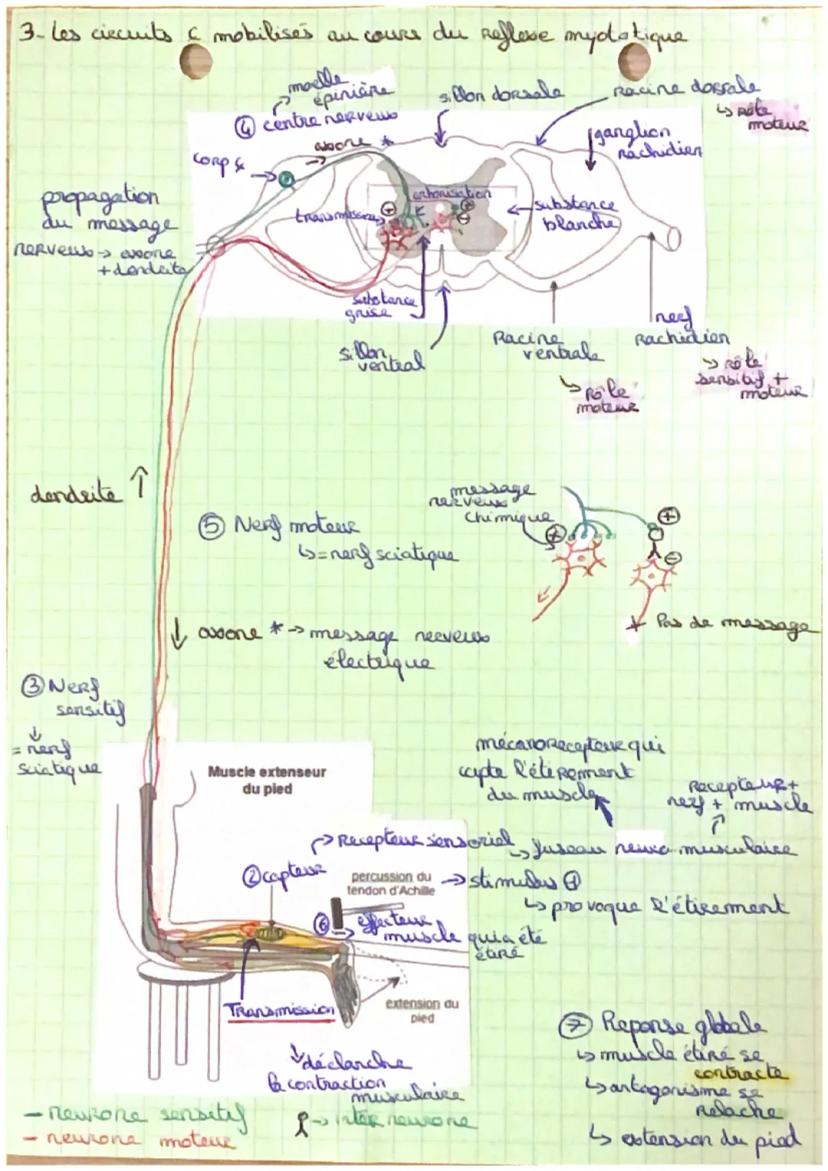 3- Les circuits c mobilisés au cours du reflexe myotatique
moelle
épinière
④ centre nerveux
sillon dorsale
racine dorsale
↳ rôle
moteur
axone *
corp ε
ganglion
rachidien
propagation
du message
nerveux → axone
+ dendrite
arborisation
transmission
substance
blanche
substance
grise
sillon
ventral
Racine
ventrale
↳ rôle
moteur
nerf
rachidien
↳ rôle
sensitif +
moteur
dendrite ↑
message
nerveux
chimique
⑤ Nerf moteur
↳ = nerf sciatique
↓ axone * → message nerveux
électrique
Pas de message
③ Nerf
sensitif
↓
= nerf
sciatique
Muscle extenseur
du pied
mécanorecepteur qui
capte l'étirement
du muscle
recepteur +
nerf + muscle
Recepteur sensoriel
↳ fuseau neuro-musculaire
② capteur
percussion du
tendon d'Achille
→ stimulus ①
↳ provoque l'étirement
⑥ → effecteur
muscle qui a été
étiré
Transmission
extension du
pied
↓ déclanche
la contraction
musculaire
⑦ Reponse globale
↳ muscle étiré se
contracte
↳ antagonisme se
relache
↳ extension du pied
- neurone sensitif
→ inter neurone
- neurone moteur